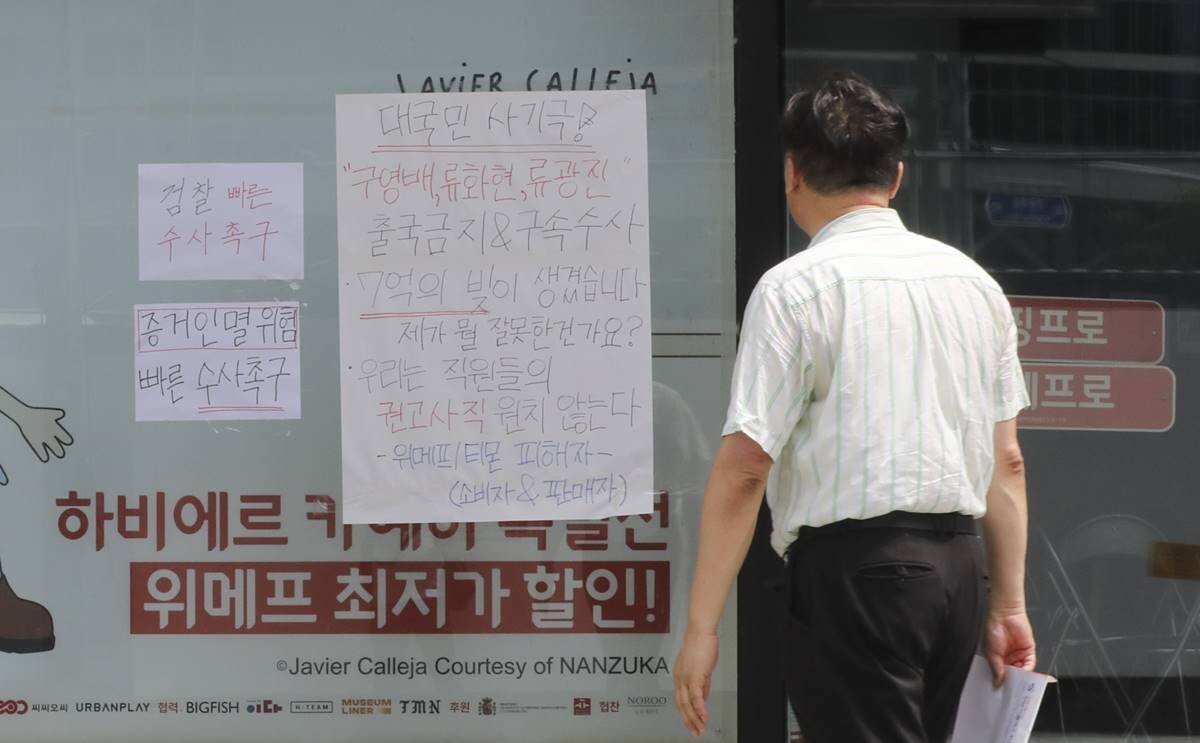 JAVIER CALLEJA
대국민 사기극!
"구영배,류화현,류광진"
출국금지&구속수사
· 7억의 빚이 생겼습니다
제가 뭘 잘못한건가요?
· 우리는 직원들의
권고사직 원치 않는다
- 위메프/티몬 피해자 -
(소비자 & 판매자)
검찰 빠른
수사촉구
증거인멸위험
빠른 수사촉구
하비에르
위메프 최저가 할인!
©Javier Calleja Courtesy of NANZUKA
씨씨오씨 URBANPLAY 협력 BIGFISH H-TEAM MUSEUM LINER TMN 후원 협찬 NOROO
핑프로
프로